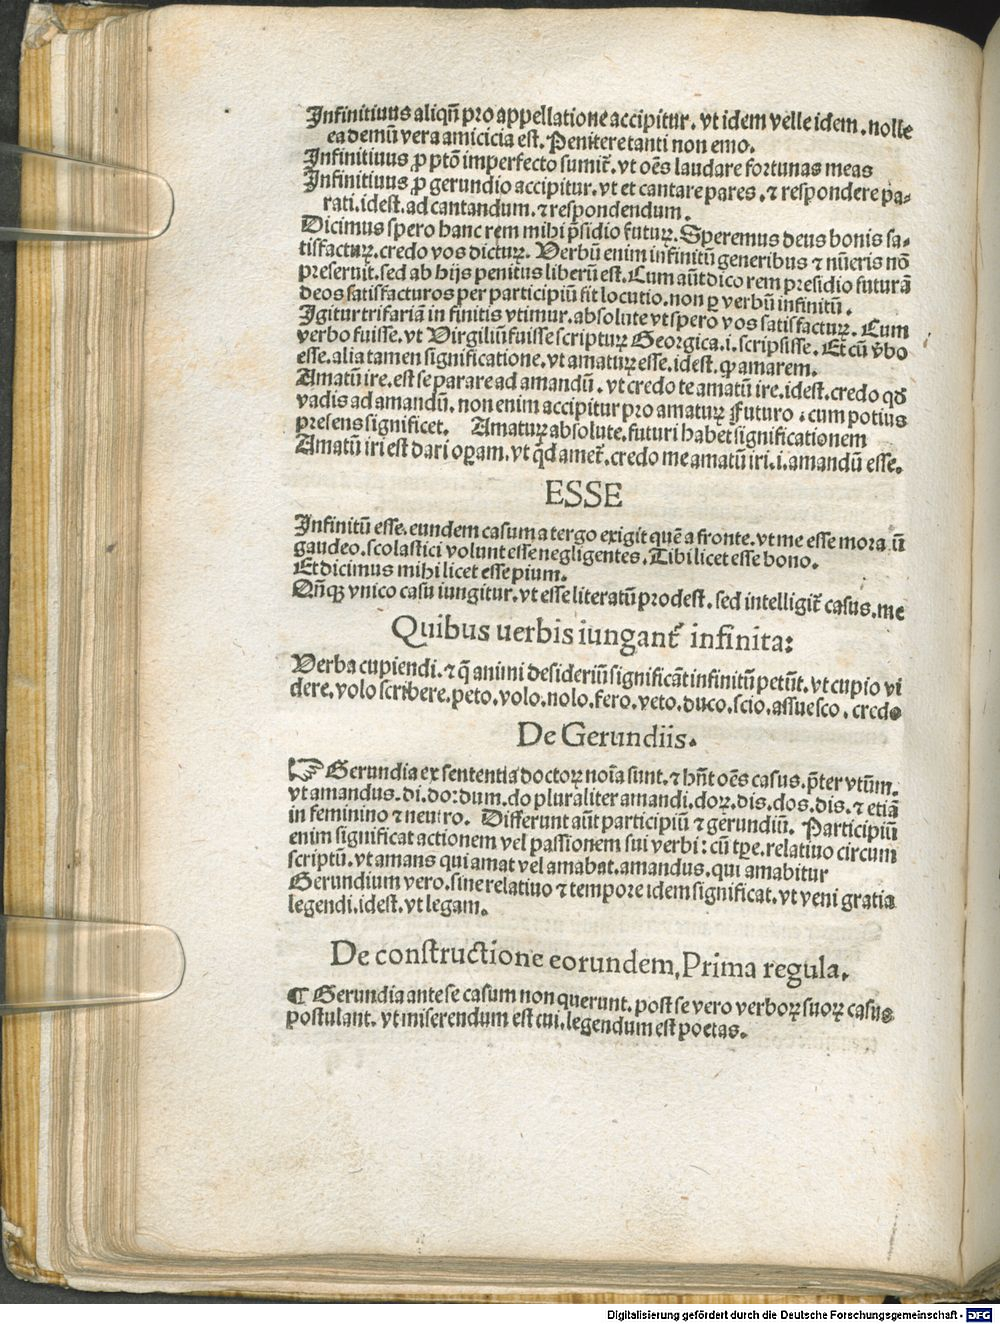 Infinitiuus aliqñ pro appellatione accipitur. vt idem velle idem. nolle
ea demū vera amicicia est. Penitere tanti non emo.
Infinitiuus ꝓ ptō imperfecto sumit᷑. vt oēs laudare fortunas meas
Infinitiuus ꝓ gerundio accipitur. vt et cantare pares. ⁊ respondere pa-
rati. idest. ad cantandum. ⁊ respondendum.
Dicimus spero hanc rem mihi p̄sidio futuꝝ. Speremus deus bonis sa-
tisfactuꝝ. credo vos dictuꝝ. Verbū enim infinitū generibus ⁊ nūeris nō
preseruit. sed ab hijs penitus liberū est. Cum aūt dico rem presidio futurā
deos satisfacturos per participiū fit locutio. non ꝑ verbū infinitū.
Igitur trifariā in finitis vtimur. absolute vt spero vos satisfactuꝝ. Cum
verbo fuisse. vt Virgiliū fuisse scriptuꝝ Georgica. i. scripsisse. Et cū v̄bo
esse. alia tamen significatione. vt amatuꝝ esse. idest. ꝙ amarem.
Amatū ire. est se parare ad amandū. vt credo te amatū ire. idest. credo qđ
vadis ad amandū. non enim accipitur pro amatuꝝ Futuro. cum potius
presens significet. Amatuꝝ absolute. futuri habet significationem
Amatū iri est dari oꝑam. vt q̄d amet᷑. credo me amatū iri. i. amandū esse.
ESSE
Infinitū esse. eundem casum a tergo exigit quē a fronte. vt me esse mora ū
gaudeo. scolastici volunt esse negligentes. Tibi licet esse bono.
Et dicimus mihi licet esse pium.
Qñqꝫ vnico casu iungitur. vt esse literatū prodest. sed intelligit᷑ casus. me
Quibus uerbis iungant᷑ infinita:
Verba cupiendi. ⁊ q̄ animi desideriū significāt infinitū petūt. vt cupio vi
dere. volo scribere. peto. volo. nolo. fero. veto. duco. scio. assuesco. credo
De Gerundiis.
☞ Gerundia ex sententia doctoꝝ noīa sunt. ⁊ hñt oēs casus. p̄ter vtūm.
vt amandus. di. do: dum. do pluraliter amandi. doꝝ. dis. dos. dis. ⁊ etiā
in feminino ⁊ neutro. Differunt aūt participiū ⁊ gerundiū. Participiū
enim significat actionem vel passionem sui verbi: cū tꝑe. relatiuo circum
scriptū. vt amans qui amat vel amabat. amandus. qui amabitur
Gerundium vero. sine relatiuo ⁊ tempore idem significat. vt veni gratia
legendi. idest. vt legam.
De constructione eorundem, Prima regula.
¶ Gerundia ante se casum non querunt. post se vero verboꝝ suoꝝ casus
postulant. vt miserendum est cui. legendum est poetas.
Digitalisierung gefördert durch die Deutsche Forschungsgemeinschaft - DFG